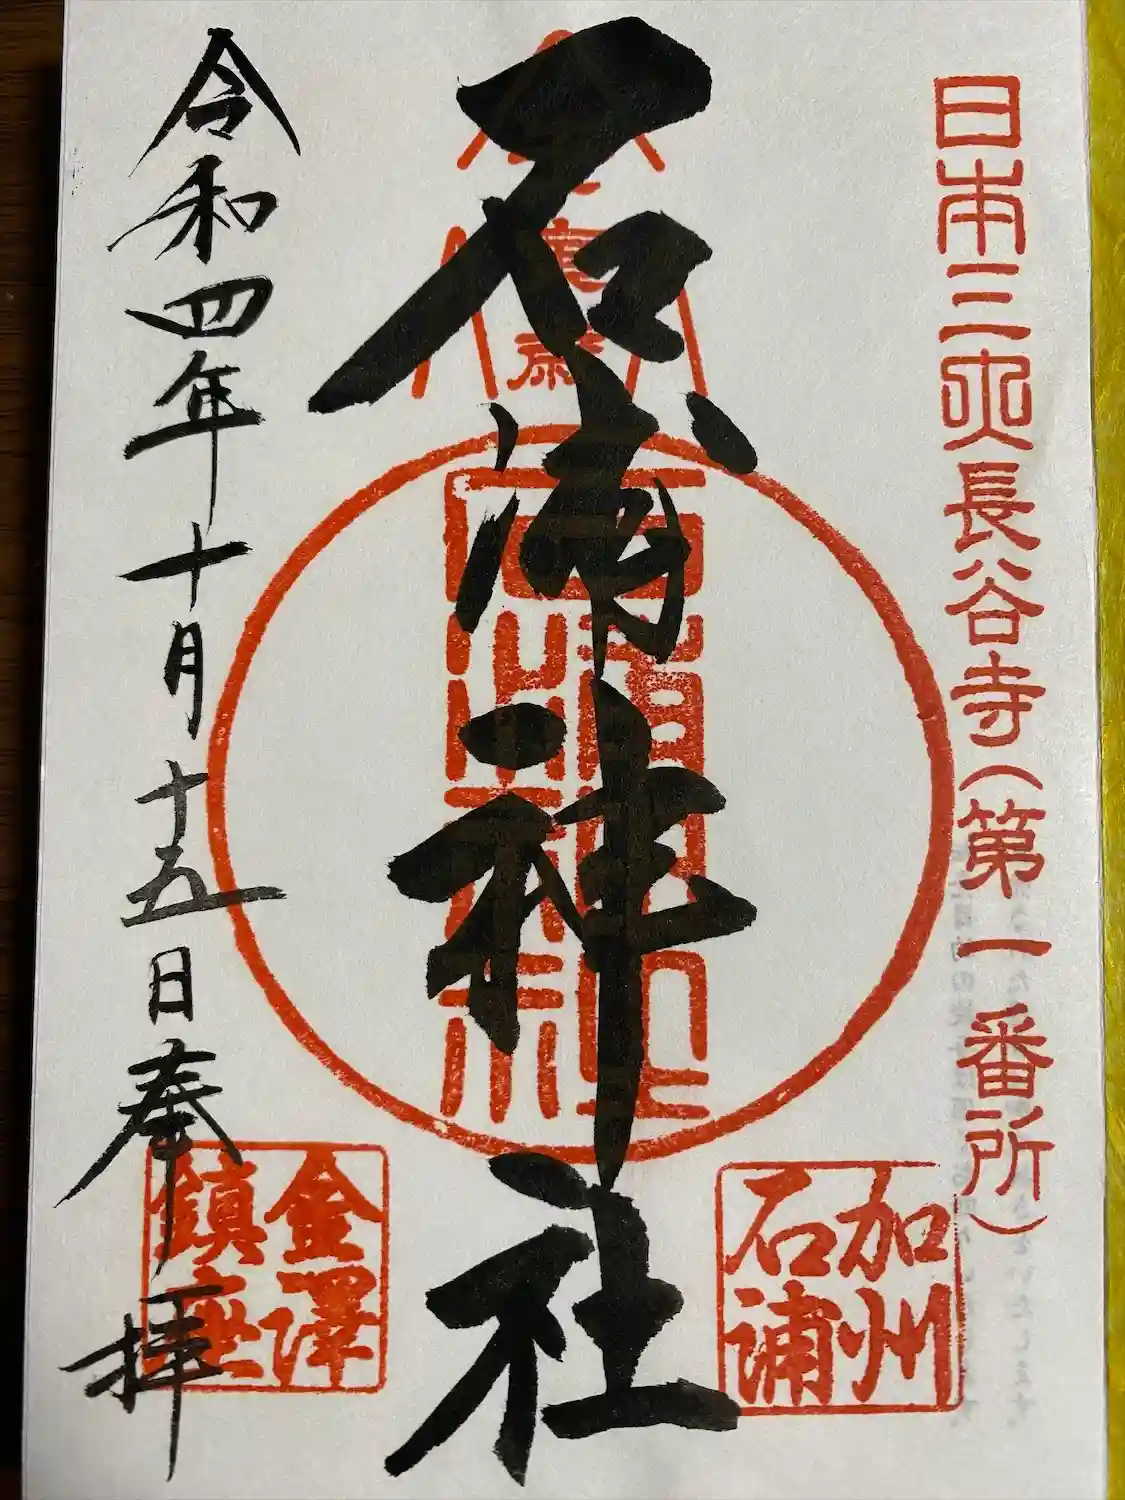 日本三所長谷寺（第一番所）
加州
石浦
石浦神社
石浦
神社
金澤
鎮座
令和四年十月十五日奉拝